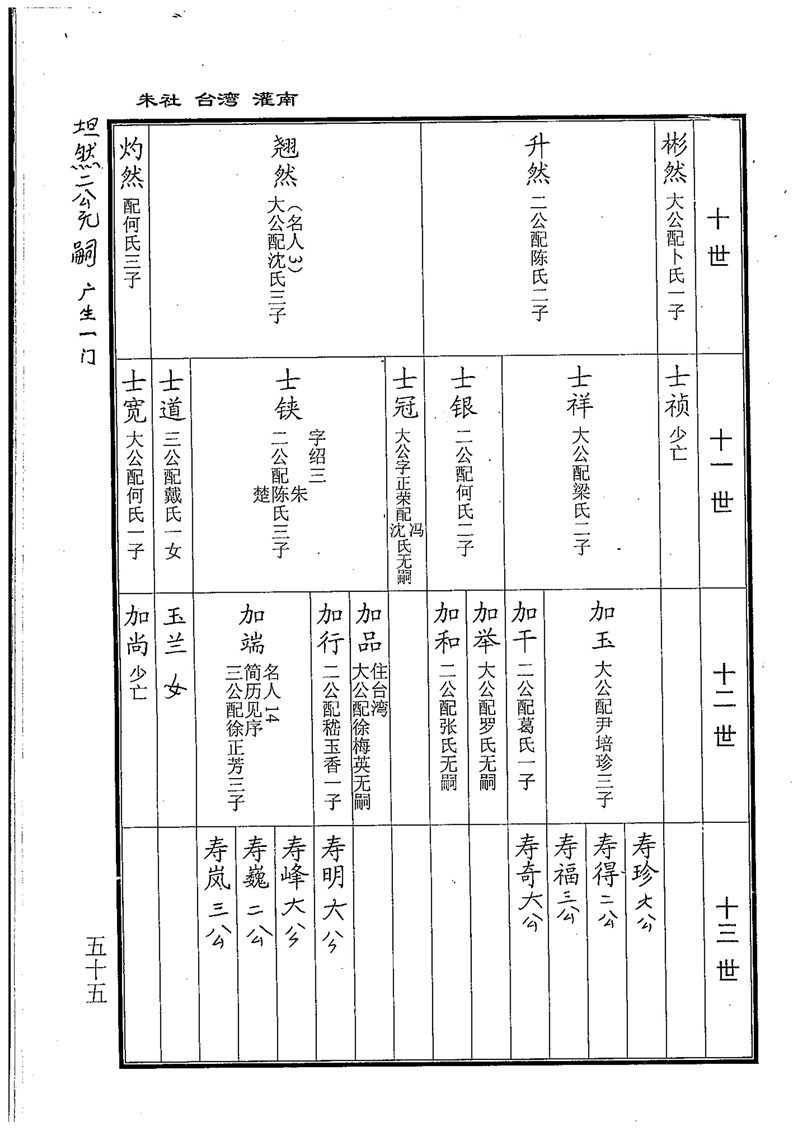 朱社 台湾 灌南
十世
彬然 大公配卜氏一子
升然 二公配陈氏二子
翘然 (名人3) 大公配沈氏三子
灼然 配何氏三子
十一世
士祯 少亡
士祥 大公配梁氏二子
士银 二公配何氏二子
士冠 大公字正荣配冯沈氏无嗣
士铗 字绍三 二公配朱陈楚氏三子
士道 三公配戴氏一女
士宽 大公配何氏一子
十二世
加玉 大公配尹培珍三子
加干 二公配葛氏一子
加举 大公配罗氏无嗣
加和 二公配张氏无嗣
加品 住台湾 大公配徐梅英无嗣
加行 二公配嵇玉香一子
加端 名人14 简历见序 三公配徐正芳三子
玉兰 女
加尚 少亡
十三世
寿珍 大公
寿得 二公
寿福 三公
寿奇 大公
寿明 大公
寿峰 大公
寿巍 二公
寿岚 三公
坦然二公无嗣 广生一门
五十五